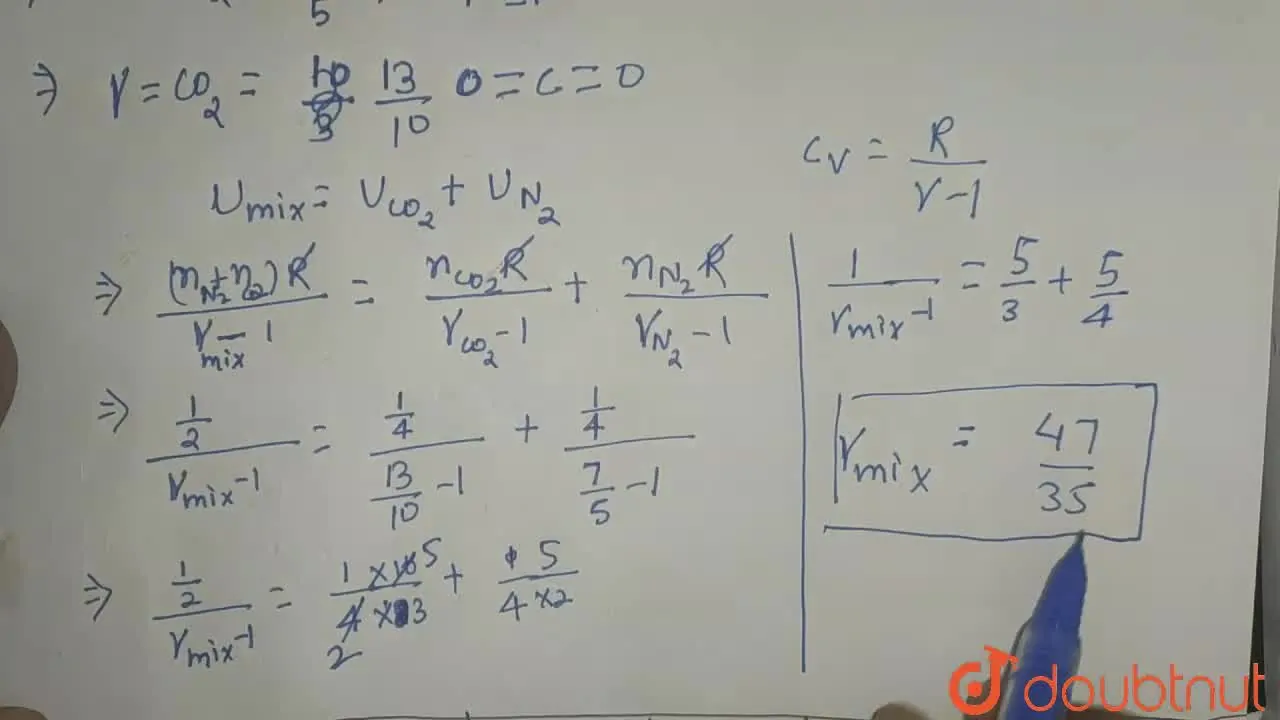 5
⇒ γ = CO₂ = 13/10 O = C = O
U_mix = U_CO₂ + U_N₂
⇒ (n_N₂ + n_CO₂)R / (γ_mix − 1) = n_CO₂ R / (γ_CO₂ − 1) + n_N₂ R / (γ_N₂ − 1)
⇒ (1/2) / (γ_mix − 1) = (1/4) / (13/10 − 1) + (1/4) / (7/5 − 1)
⇒ (1/2) / (γ_mix − 1) = 1 × 10 5 / 4 × 3 + 5 / 4 × 2
2
C_V = R / (γ − 1)
1 / (γ_mix − 1) = 5/3 + 5/4
γ_mix = 47/35
doubtnut